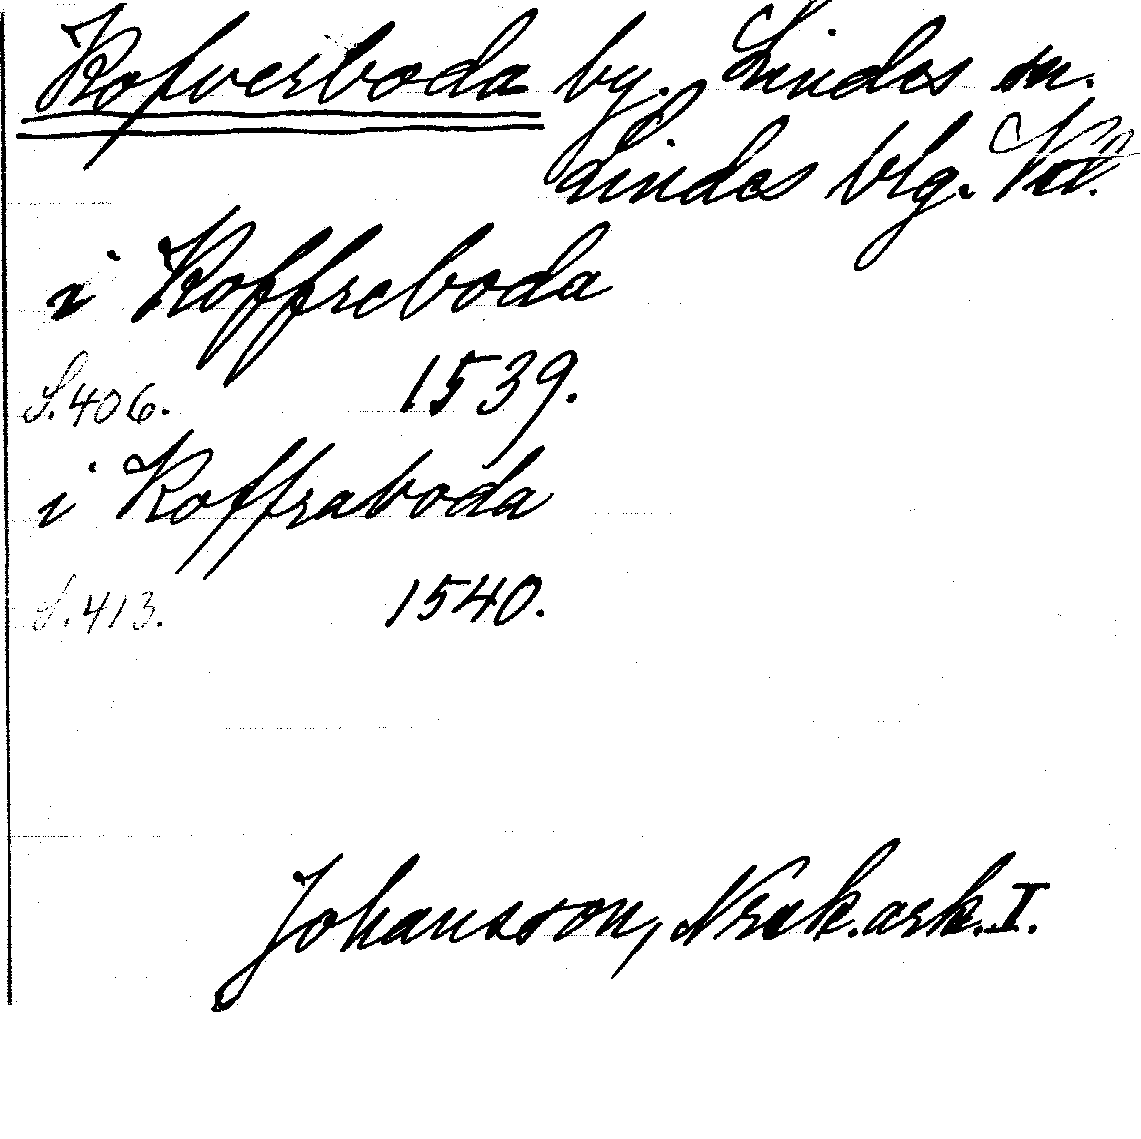 Kofverboda by. Lindes sn.
Lindes blg. Vstl.
i Koffreboda
S. 406. 1539.
i Koffraboda
S. 413. 1540.
Johansson, Norask. ark. I.